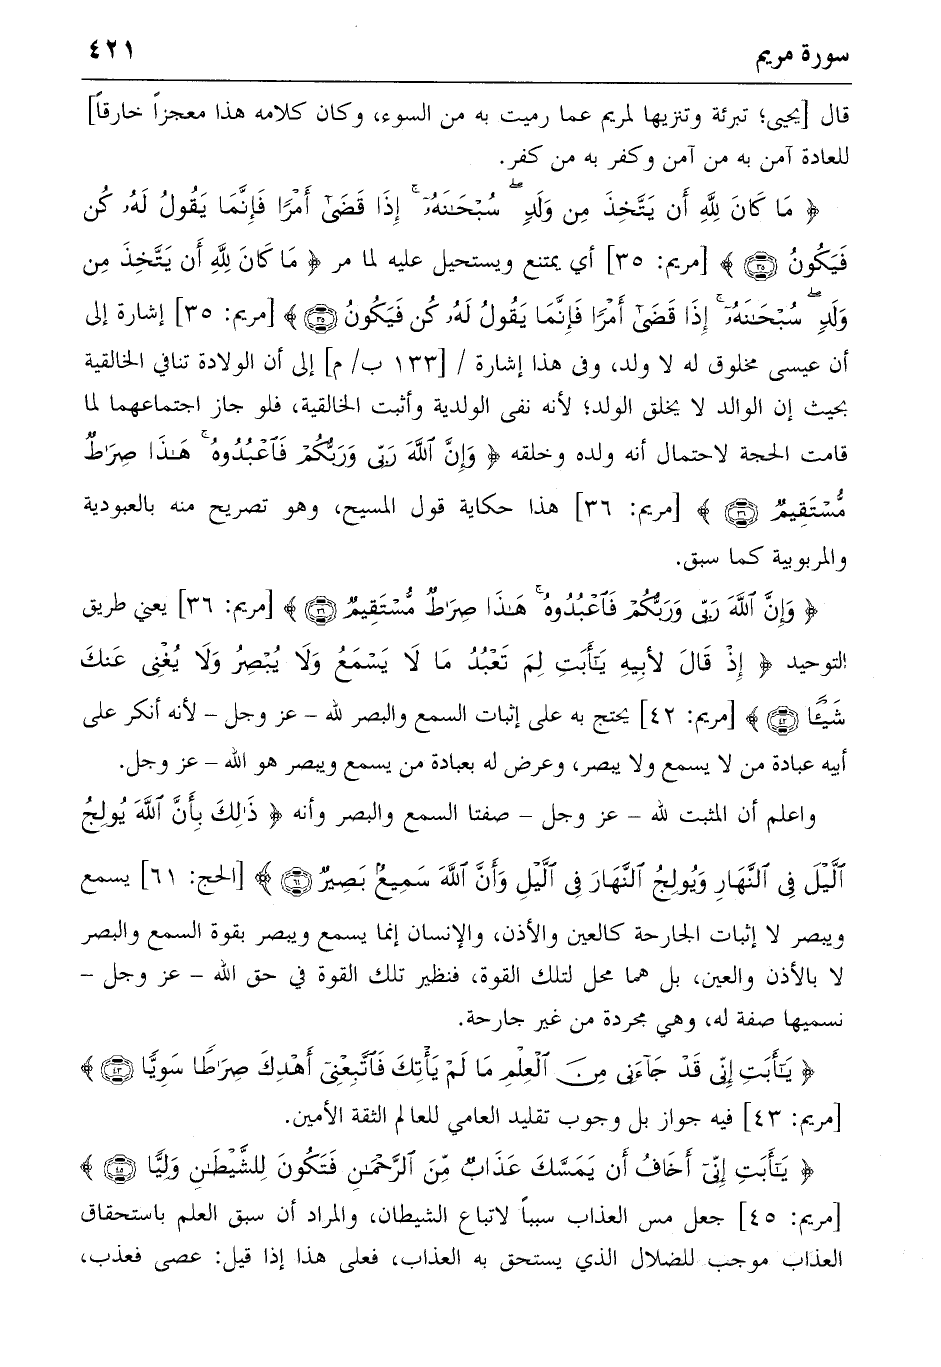 سورة مريم ٤٢١
قال [يحيى؛ تبرئة وتنزيها لمريم عما رميت به من السوء، وكان كلامه هذا معجزاً خارقاً]
للعادة آمن به من آمن وكفر به من كفر.
﴿ مَا كَانَ لِلَّهِ أَن يَتَّخِذَ مِن وَلَدٍ ۖ سُبْحَـٰنَهُۥٓ ۚ إِذَا قَضَىٰٓ أَمْرًا فَإِنَّمَا يَقُولُ لَهُۥ كُن
فَيَكُونُ ٣٥ ﴾ [مريم: ٣٥] أي يمتنع ويستحيل عليه لما مر ﴿ مَا كَانَ لِلَّهِ أَن يَتَّخِذَ مِن
وَلَدٍ ۖ سُبْحَـٰنَهُۥٓ ۚ إِذَا قَضَىٰٓ أَمْرًا فَإِنَّمَا يَقُولُ لَهُۥ كُن فَيَكُونُ ٣٥ ﴾ [مريم: ٣٥] إشارة إلى
أن عيسى مخلوق له لا ولد، وفى هذا إشارة / [١٣٣ ب/ م] إلى أن الولادة تنافي الخالقية
بحيث إن الوالد لا يخلق الولد؛ لأنه نفى الولدية وأثبت الخالقية، فلو جاز اجتماعهما لما
قامت الحجة لاحتمال أنه ولده وخلقه ﴿ وَإِنَّ ٱللَّهَ رَبِّى وَرَبُّكُمْ فَٱعْبُدُوهُ ۚ هَـٰذَا صِرَٰطٌ
مُّسْتَقِيمٌ ٣٦ ﴾ [مريم: ٣٦] هذا حكاية قول المسيح، وهو تصريح منه بالعبودية
والمربوبية كما سبق.
﴿ وَإِنَّ ٱللَّهَ رَبِّى وَرَبُّكُمْ فَٱعْبُدُوهُ ۚ هَـٰذَا صِرَٰطٌ مُّسْتَقِيمٌ ٣٦ ﴾ [مريم: ٣٦] يعني طريق
التوحيد ﴿ إِذْ قَالَ لِأَبِيهِ يَـٰٓأَبَتِ لِمَ تَعْبُدُ مَا لَا يَسْمَعُ وَلَا يُبْصِرُ وَلَا يُغْنِى عَنكَ
شَيْـًٔا ٤٢ ﴾ [مريم: ٤٢] يحتج به على إثبات السمع والبصر لله – عز وجل – لأنه أنكر على
أبيه عبادة من لا يسمع ولا يبصر، وعرض له بعبادة من يسمع ويبصر هو الله – عز وجل.
واعلم أن المثبت لله – عز وجل – صفتا السمع والبصر وأنه ﴿ ذَٰلِكَ بِأَنَّ ٱللَّهَ يُولِجُ
ٱلَّيْلَ فِى ٱلنَّهَارِ وَيُولِجُ ٱلنَّهَارَ فِى ٱلَّيْلِ وَأَنَّ ٱللَّهَ سَمِيعٌۢ بَصِيرٌ ٦١ ﴾ [الحج: ٦١] يسمع
ويبصر لا إثبات الجارحة كالعين والأذن، والإنسان إنما يسمع ويبصر بقوة السمع والبصر
لا بالأذن والعين، بل هما محل لتلك القوة، فنظير تلك القوة في حق الله – عز وجل –
نسميها صفة له، وهي مجردة من غير جارحة.
﴿ يَـٰٓأَبَتِ إِنِّى قَدْ جَآءَنِى مِنَ ٱلْعِلْمِ مَا لَمْ يَأْتِكَ فَٱتَّبِعْنِىٓ أَهْدِكَ صِرَٰطًا سَوِيًّا ٤٣ ﴾
[مريم: ٤٣] فيه جواز بل وجوب تقليد العامي للعالم الثقة الأمين.
﴿ يَـٰٓأَبَتِ إِنِّىٓ أَخَافُ أَن يَمَسَّكَ عَذَابٌ مِّنَ ٱلرَّحْمَـٰنِ فَتَكُونَ لِلشَّيْطَـٰنِ وَلِيًّا ٤٥ ﴾
[مريم: ٤٥] جعل مس العذاب سبباً لاتباع الشيطان، والمراد أن سبق العلم باستحقاق
العذاب موجب للضلال الذي يستحق به العذاب، فعلى هذا إذا قيل: عصى فعذب،